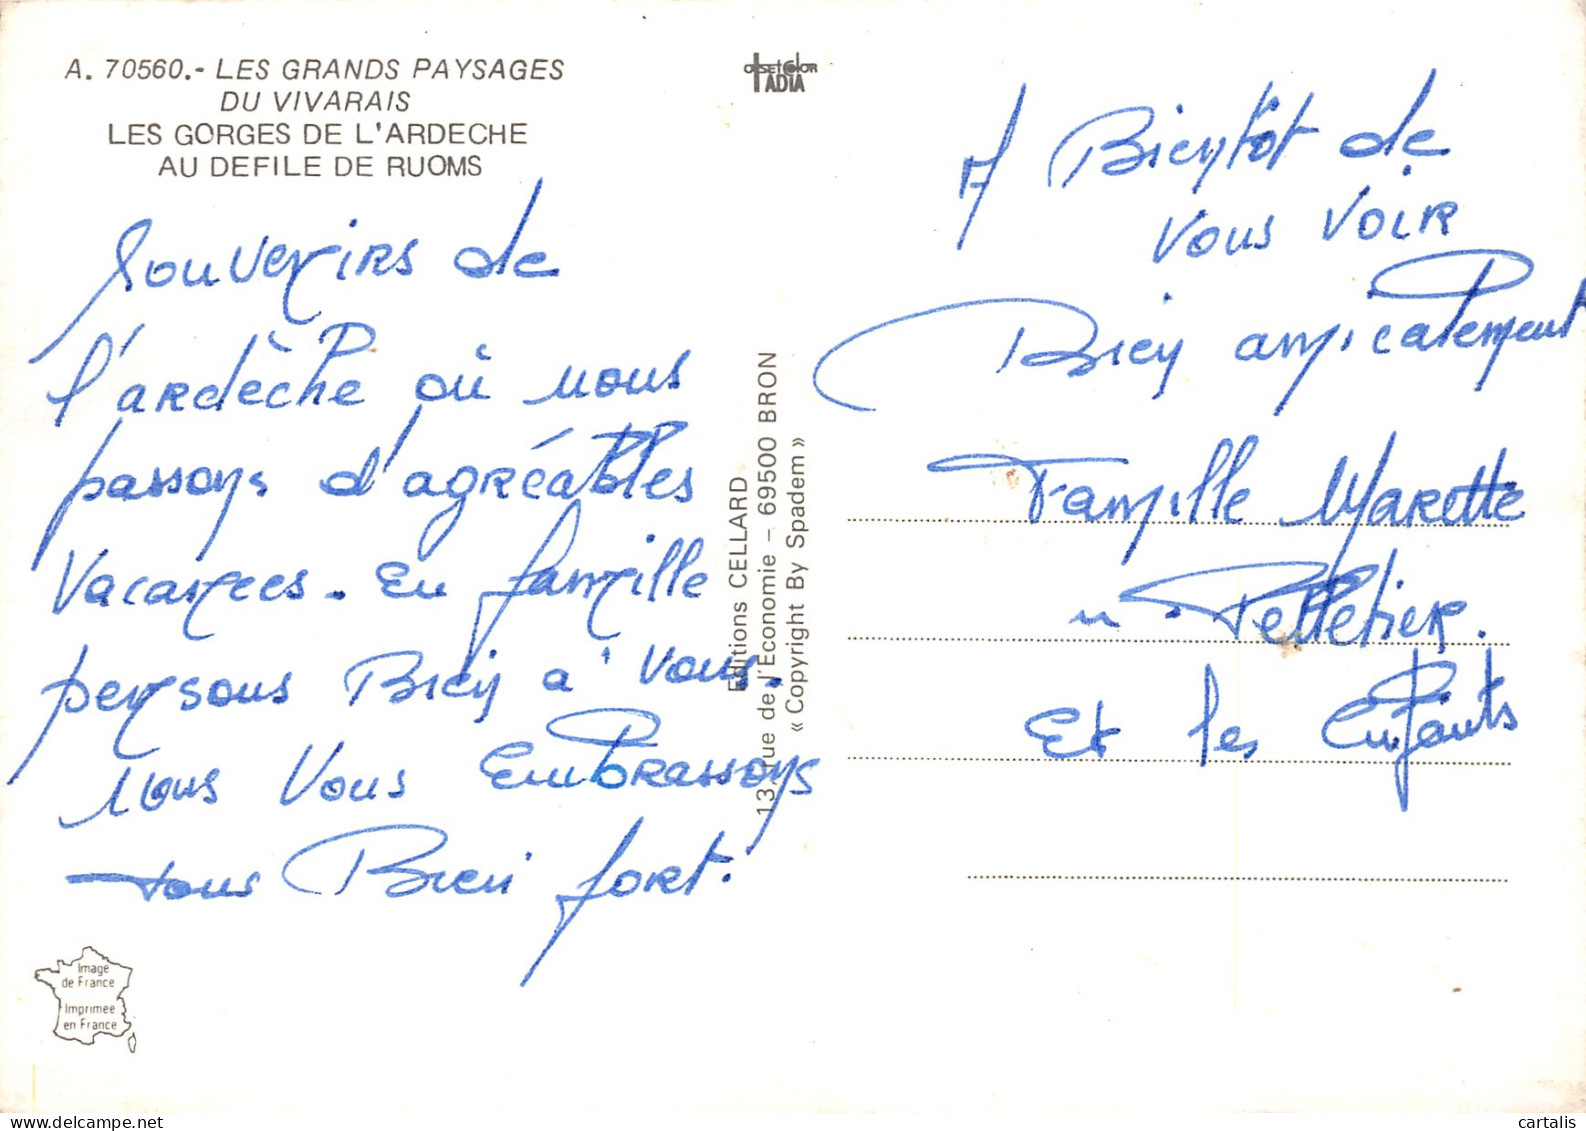 A. 70560.- LES GRANDS PAYSAGES
DU VIVARAIS
LES GORGES DE L'ARDECHE
AU DEFILE DE RUOMS
Souvenirs de
l'ardèche où nous
passons d'agréables
Vacances. En famille
pensons Bien à vous.
nous vous EmBrassons
tous Bien fort.
Image
de France
Imprimée
en France
OFFSET COLOR
IADIA
Editions CELLARD
13, rue de l'Economie – 69500 BRON
« Copyright By Spadem »
A Bientôt de
vous voir
Bien amicalement
Famille Marette
" Pelletier.
Et les Enfants
cartalis